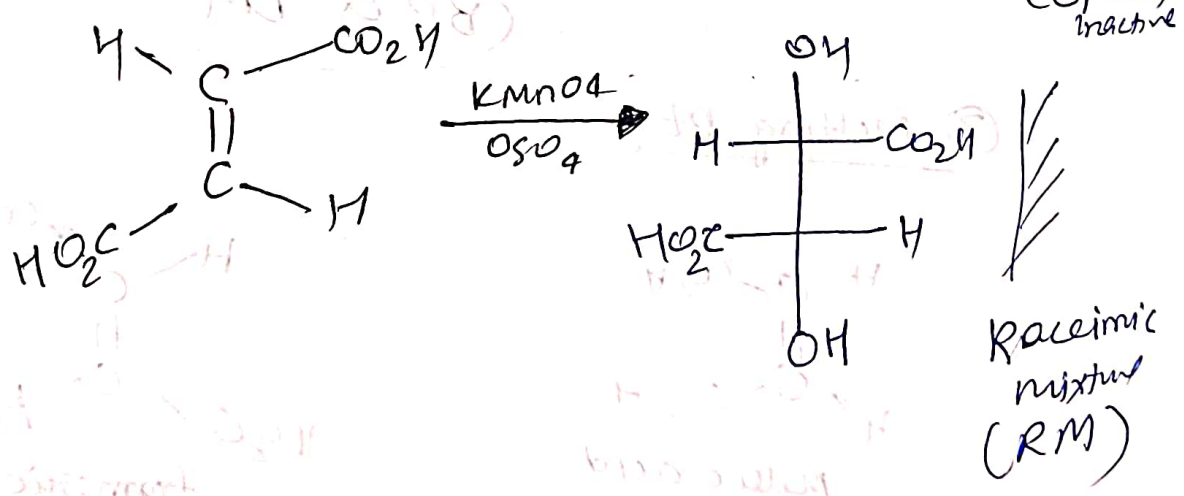 Inactive
H
CO2H
C
C
HO2C
H
KMnO4
OsO4
OH
H
CO2H
HO2C
H
OH
Raceimic
mixture
(RM)